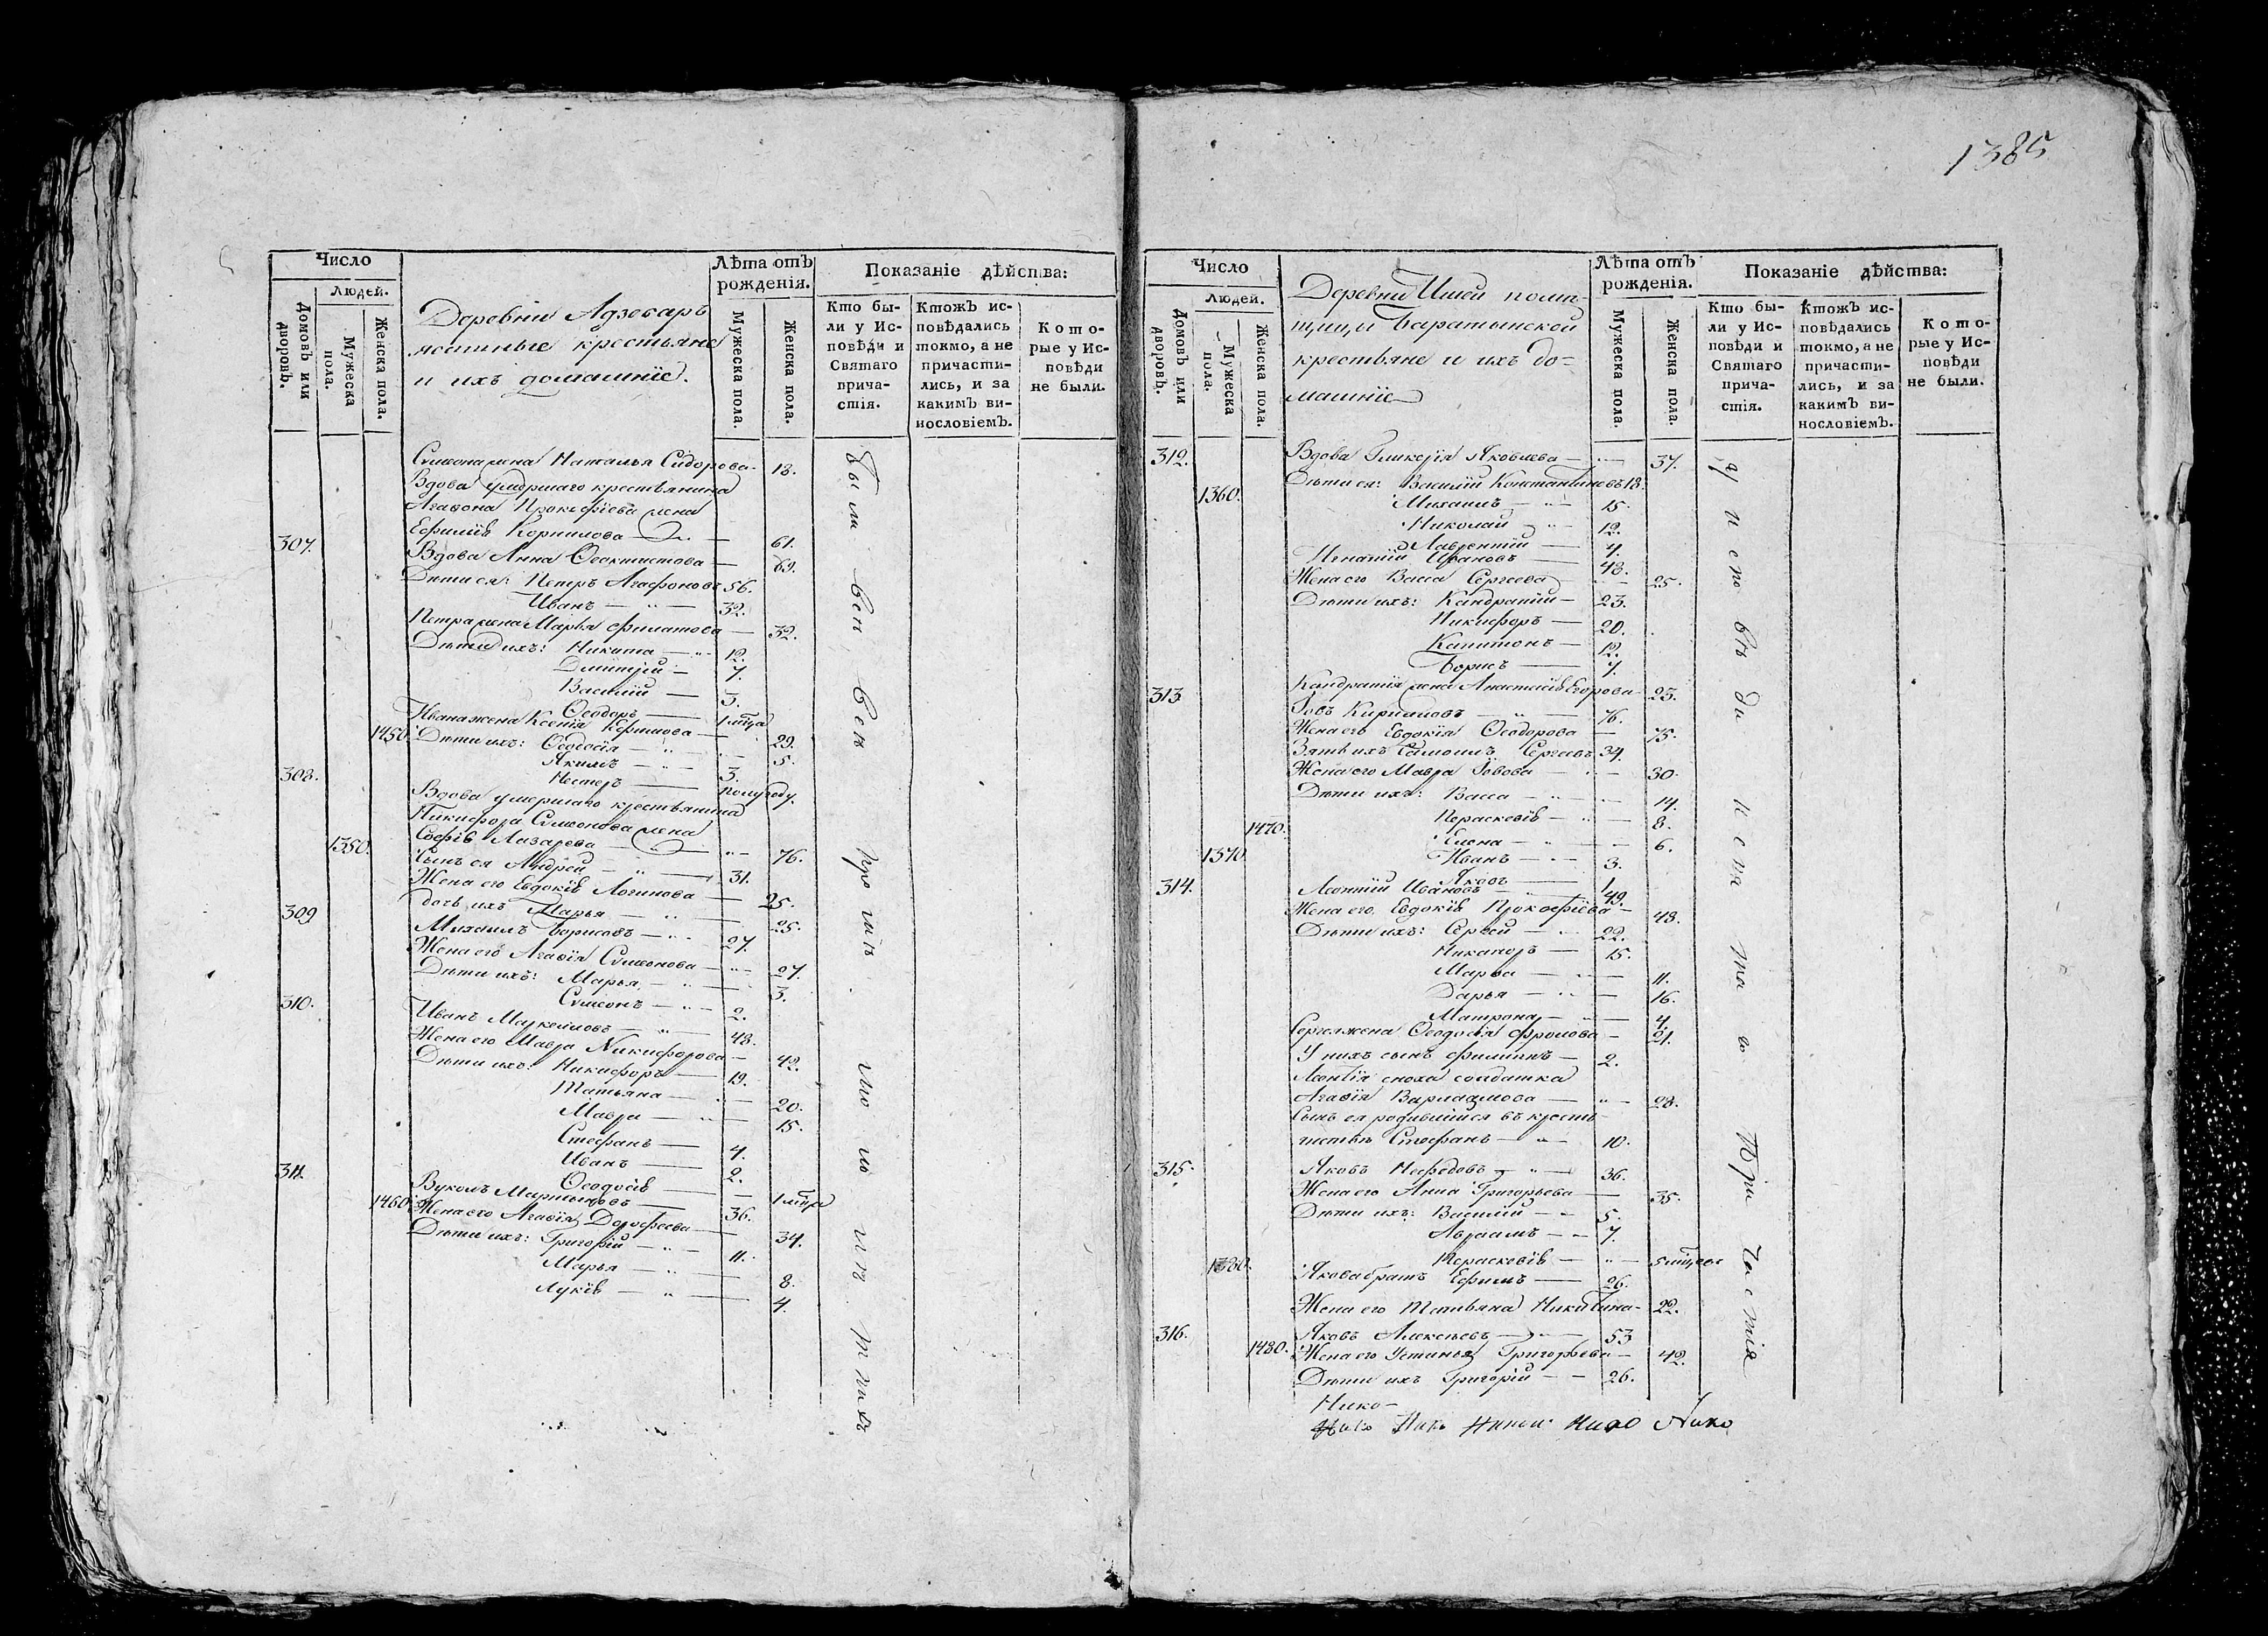 1385
Число
Людей.
Домовъ или дворовъ.
Мужеска пола.
Женска пола.
Деревни
крестьяне
и ихъ домашніе.
Лѣта отъ рожденія.
Мужеска пола.
Женска пола.
Показаніе дѣйства:
Кто были у Исповѣди и Святаго причастія.
Ктожъ исповѣдались токмо, а не причастились, и за какимъ винословіемъ.
Которые у Исповѣди не были.
Сѵмеона жена Наталья Сидорова 18.
Вдова умершаго крестьянина
Агафона Прокофіева жена
Ефимія Корнилова 61.
307. Вдова Анна Ѳеоктистова 69.
Дѣти ея: Петръ Агафоновъ 56.
Иванъ 32.
Петра жена Марья Филатова 32.
Дѣти ихъ: Никита 12.
Дмитрій 7.
Василій 3.
Ѳеодоръ 1
Ивана жена Ксенія 29.
1450. Дѣти ихъ: Ѳеодосія 5.
Якимъ 3.
Нестеръ полугоду.
308. Вдова умершаго крестьянина
Никифора Сѵмеонова жена
Софія Лазарева 76.
1350. Сынъ ея Андрей 31.
Жена его Евдокія Логинова 25.
дочь ихъ Марья 25.
309 Михаилъ Борисовъ 27.
Жена его Агафія Сѵмеонова 27.
Дѣти ихъ: Марья 3.
Сѵмеонъ 2.
310. Иванъ Маркеловъ 48.
Жена его Мавра Никифорова 42.
Дѣти ихъ: Никифоръ 19.
Татьяна 20.
Мавра 15.
Стефанъ 4.
Иванъ 2.
Ѳеодосія 1
311. Вуколъ Мартыновъ 36.
1460. Жена его Агафія Дорофеева 34.
Дѣти ихъ: Григорій 11.
Марья 8.
Лукія 4.
Число
Людей.
Домовъ или дворовъ.
Мужеска пола.
Женска пола.
Деревни Ишеи помѣ-
щицы Баратынской
крестьяне и ихъ до=
машніе
Лѣта отъ рожденія.
Мужеска пола.
Женска пола.
Показаніе дѣйства:
Кто были у Исповѣди и Святаго причастія.
Ктожъ исповѣдались токмо, а не причастились, и за какимъ винословіемъ.
Которые у Исповѣди не были.
312. Вдова Гликерія Яковлева 37.
1360. Дѣти ея: Василій Константиновъ 18.
Михаилъ 15.
Николай 12.
Лаврентій 4.
Игнатій Ивановъ 48.
Жена его Васса Сергеева 25.
Дѣти ихъ: Кандратій 23.
Никифоръ 20.
Капитонъ 12.
Борисъ 7.
Кандратія жена Анастасія Егорова 23.
313 Іовъ Кириловъ 76.
Жена его Евдокія Ѳеодорова 75.
Зять ихъ Самоилъ Сергеевъ 34.
Жена его Мавра Іовова 30.
Дѣти ихъ: Васса 14.
Пераскевія 8.
1470. Елена 6.
1370 Иванъ 3.
Яковъ 1
314. Леонтій Ивановъ 49.
Жена его Евдокія Прокофіева 48.
Дѣти ихъ: Сергей 22.
Никаноръ 15.
Марѳа 11.
Дарья 16.
Матрона 4.
Сергея жена Ѳеодосія Фролова 21.
У нихъ сынъ Филипъ 2.
Леонтія сноха солдатка
Агафія Варлаамова 28.
Сынъ ея родившійся въ кресть-
янствѣ Стефанъ 10.
315. Яковъ Нефедовъ 36.
Жена его Анна Григорьева 35.
Дѣти ихъ: Василій 5.
Авраамъ 7.
Пераскевія 5
1380. Якова братъ Ефимъ 26.
Жена его Татьяна Никитина 22.
316. Яковъ Алексеевъ 53
1480. Жена его Устинья Григорьева 42.
Дѣти ихъ Григорій 26.
Нико-
Нико Нико